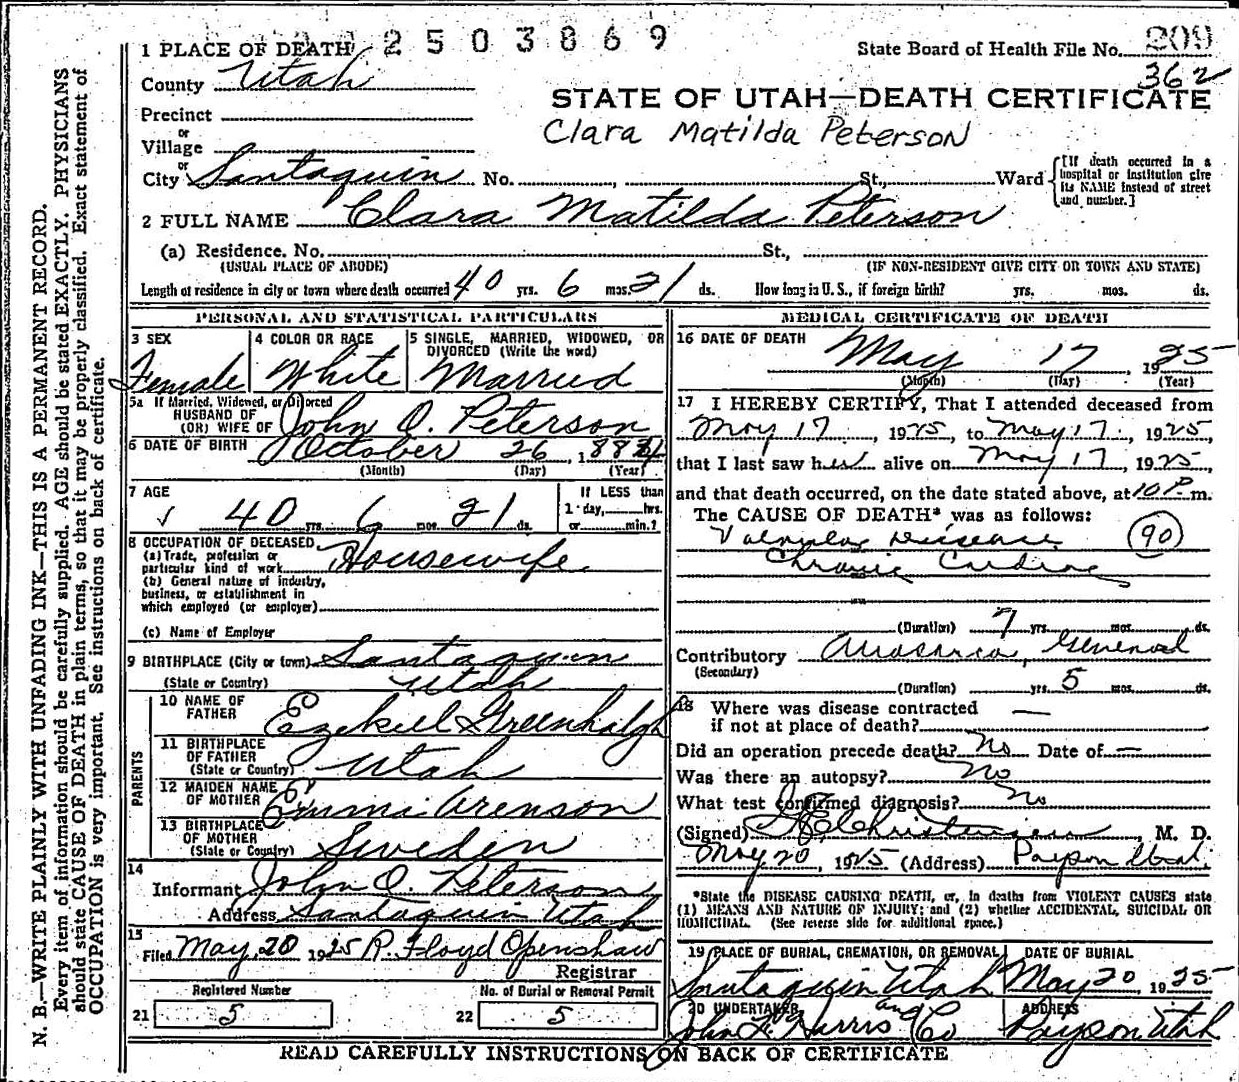 1 PLACE OF DEATH 2503869 State Board of Health File No. 209
County Utah 362
STATE OF UTAH—DEATH CERTIFICATE
Precinct
Clara Matilda Peterson
or
Village
or
City Santaquin No. , St., Ward [If death occurred in a hospital or institution give its NAME instead of street and number.]
2 FULL NAME Clara Matilda Peterson
(a) Residence. No. St.,
(USUAL PLACE OF ABODE) (IF NON-RESIDENT GIVE CITY OR TOWN AND STATE)
Length of residence in city or town where death occurred 40 yrs. 6 mos. 21 ds. How long in U. S., if foreign birth? yrs. mos. ds.
PERSONAL AND STATISTICAL PARTICULARS
3 SEX
Female
4 COLOR OR RACE
White
5 SINGLE, MARRIED, WIDOWED, OR
DIVORCED (Write the word)
Married
5a If Married, Widowed, or Divorced
HUSBAND OF
(OR) WIFE OF John O. Peterson
6 DATE OF BIRTH October 26, 1884
(Month) (Day) (Year)
7 AGE
40 yrs. 6 mos. 21 ds.
If LESS than
1 day, hrs.
or min.?
8 OCCUPATION OF DECEASED
(a) Trade, profession or
particular kind of work Housewife.
(b) General nature of industry,
business, or establishment in
which employed (or employer)
(c) Name of Employer
9 BIRTHPLACE (City or town) Santaquin
(State or Country) Utah
PARENTS
10 NAME OF
FATHER Ezekiel Greenhalgh
11 BIRTHPLACE
OF FATHER
(State or Country) Utah
12 MAIDEN NAME
OF MOTHER Emma Arenson
13 BIRTHPLACE
OF MOTHER
(State or Country) Sweden
14
Informant John O. Peterson
Address Santaquin Utah
15
Filed May, 20 1925 R. Floyd Openshaw
Registrar
Registered Number
21 5
No. of Burial or Removal Permit
22 5
MEDICAL CERTIFICATE OF DEATH
16 DATE OF DEATH
May 17, 1925
(Month) (Day) (Year)
17 I HEREBY CERTIFY, That I attended deceased from
May 17, 1925, to May 17, 1925,
that I last saw her alive on May 17, 1925,
and that death occurred, on the date stated above, at 10 P. m.
The CAUSE OF DEATH* was as follows:
Valvular Disease 90
Chronic Cardiac
(Duration) 7 yrs. mos. ds.
Contributory Anasarca, General
(Secondary)
(Duration) yrs. 5 mos. ds.
18 Where was disease contracted
if not at place of death? —
Did an operation precede death? No Date of —
Was there an autopsy? No
What test confirmed diagnosis? No
(Signed) Christensen, M. D.
May 20, 1925 (Address) Payson Utah.
*State the DISEASE CAUSING DEATH, or, in deaths from VIOLENT CAUSES state
(1) MEANS AND NATURE OF INJURY; and (2) whether ACCIDENTAL, SUICIDAL OR
HOMICIDAL. (See reverse side for additional space.)
19 PLACE OF BURIAL, CREMATION, OR REMOVAL
Santaquin Utah
DATE OF BURIAL
May 20 1925
20 UNDERTAKER
John F. Harris and Co
ADDRESS
Payson, Utah
READ CAREFULLY INSTRUCTIONS ON BACK OF CERTIFICATE
N. B.—WRITE PLAINLY WITH UNFADING INK—THIS IS A PERMANENT RECORD.
Every item of information should be carefully supplied. AGE should be stated EXACTLY. PHYSICIANS
should state CAUSE OF DEATH in plain terms, so that it may be properly classified. Exact statement of
OCCUPATION is very important. See instructions on back of certificate.